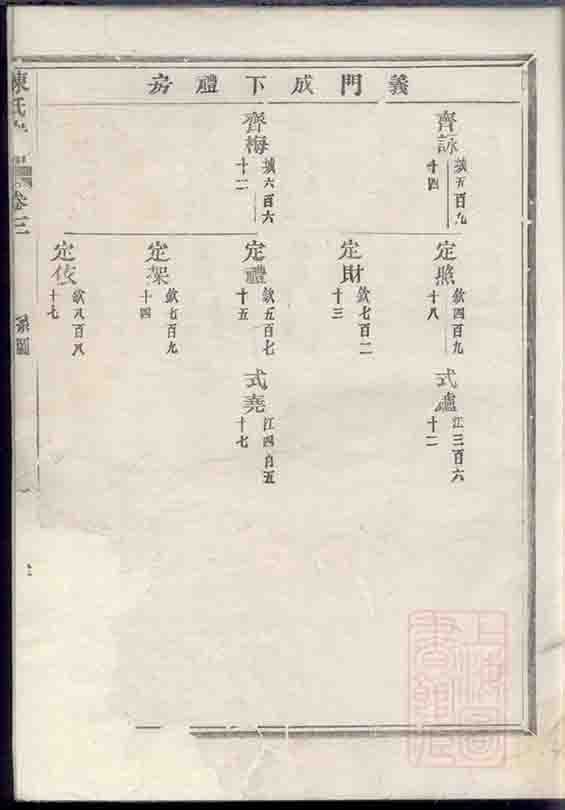 義門成下禮房
齊詠
城五百九
十四
齊梅
城六百六
十二
定照
欽四百九
十八
定財
欽七百二
十三
定禮
欽五百七
十五
定架
欽七百九
十四
定依
欽八百八
十七
式
江三百六
十二
式堯
江四百五
十七
陳氏
卷三
系圖
上海圖
書館藏